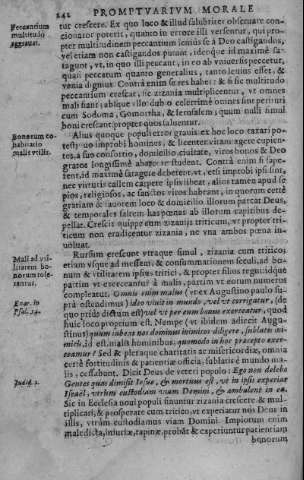 242 PROMPTVARIVM MORALE
Peccantium
multitudo
aggrauat.
tur crescere. Ex quo loco & illud salubriter obseruare con-
cionator poterit, quanto in errore illi versentur, qui pro-
pter multitudinem peccantium iomissis à Deo castigandis,
vel etiam non castigandis putant, ideoque id maximè sa-
tagunt, vt, in quo illi peccant, in eo ab vniuersis peccetur,
quasi peccatum quanto generalius, tanto leuius esset, &
venia dignius. Contra enim se res habet: & si sic multitudo
peccantium crescat, sic zizania multiplicentur, vt omnes
mali fiant; absque illo dubio celerrimè omnes sint perituri
cum Sodoma, Gomorrha, & Ierosalem; quum nulli simul
boni crescant propter quos saluentur.
Bonorum co-
habitatio
malis vtilis.
Alius quoque populi error grauis ex hoc loco taxari po-
test: vbi improbi homines, & licenter vitam agere cupien-
tes, a suo consortio, domicilio, ciuitate, viros bonos & Deo
gratos longissimè abesse student. Contra enim si sape-
rent, id maximè satagere deberent, vt, etsi improbi ipsi sint,
nec virtutis callem carpere ipsis libeat, alios tamen apud se
pios, religiosos, ac sanctos viros habeant, in quorum certè
gratiam & auorem loco & domicilio illorum parcat Deus,
& temporales saltem has poenas ab illorum capitibus de-
pellat. Crescit quippe cum zizaniis triticum, vt propter tri-
ticum non eradicentur zizania, ne vna ambos poena in-
uoluat.
Mali ad vti-
litatem bo-
norum tole-
rantur.
Rursum crescunt vtraque simul, zizania cum tritico
etiam vsque ad messem, & consummationem seculi, ad bo-
num & vtilitatem ipsius tritici, & propter filios regni: idque
partim vt exerceantur à malis, partim vt eorum numerus
compleatur.
Enar. in
Psal. 54.
Omnis enim malus ( vt ex Augustino paulo su-
prà ostendimus) ideo viuit in mundo, vel vt corrigatur, (de
quo priùs dictum est) vel vt per eum bonus exerceatur, quod
huic loco proprium est. Nempe (vt ibidem adiicit Augu-
stinus) quum iubeas nos dominus inimicos diligere, sublatis ini-
micis, id est, malis hominibus, quomodo in hoc præcepto exer-
ceamur? Sed & pleræque charitatis ac misericordiæ, omnia
certè fortitudinis & patientiæ officia, sublatis è mundo ma-
lis, cessabunt. Dicit Deus de veteri populo:
Iudic. 2.
Ego non delebo
Gentes quas dimisit Iosue, & mortuus est, vt in ipsis experiar
Israel, vtrum custodiant viam Domini, & ambulent in ea.
Sic in Ecclesia noui populi sinuntur zizania crescere & mul-
tiplicari, & prosperare cum tritico, vt experiatur nos Deus in
illis, vtrùm custodiamus viam Domini. Impiorum enim
maledicta, iniuriæ, rapinæ, probant & experiuntur patientiam
bonorum